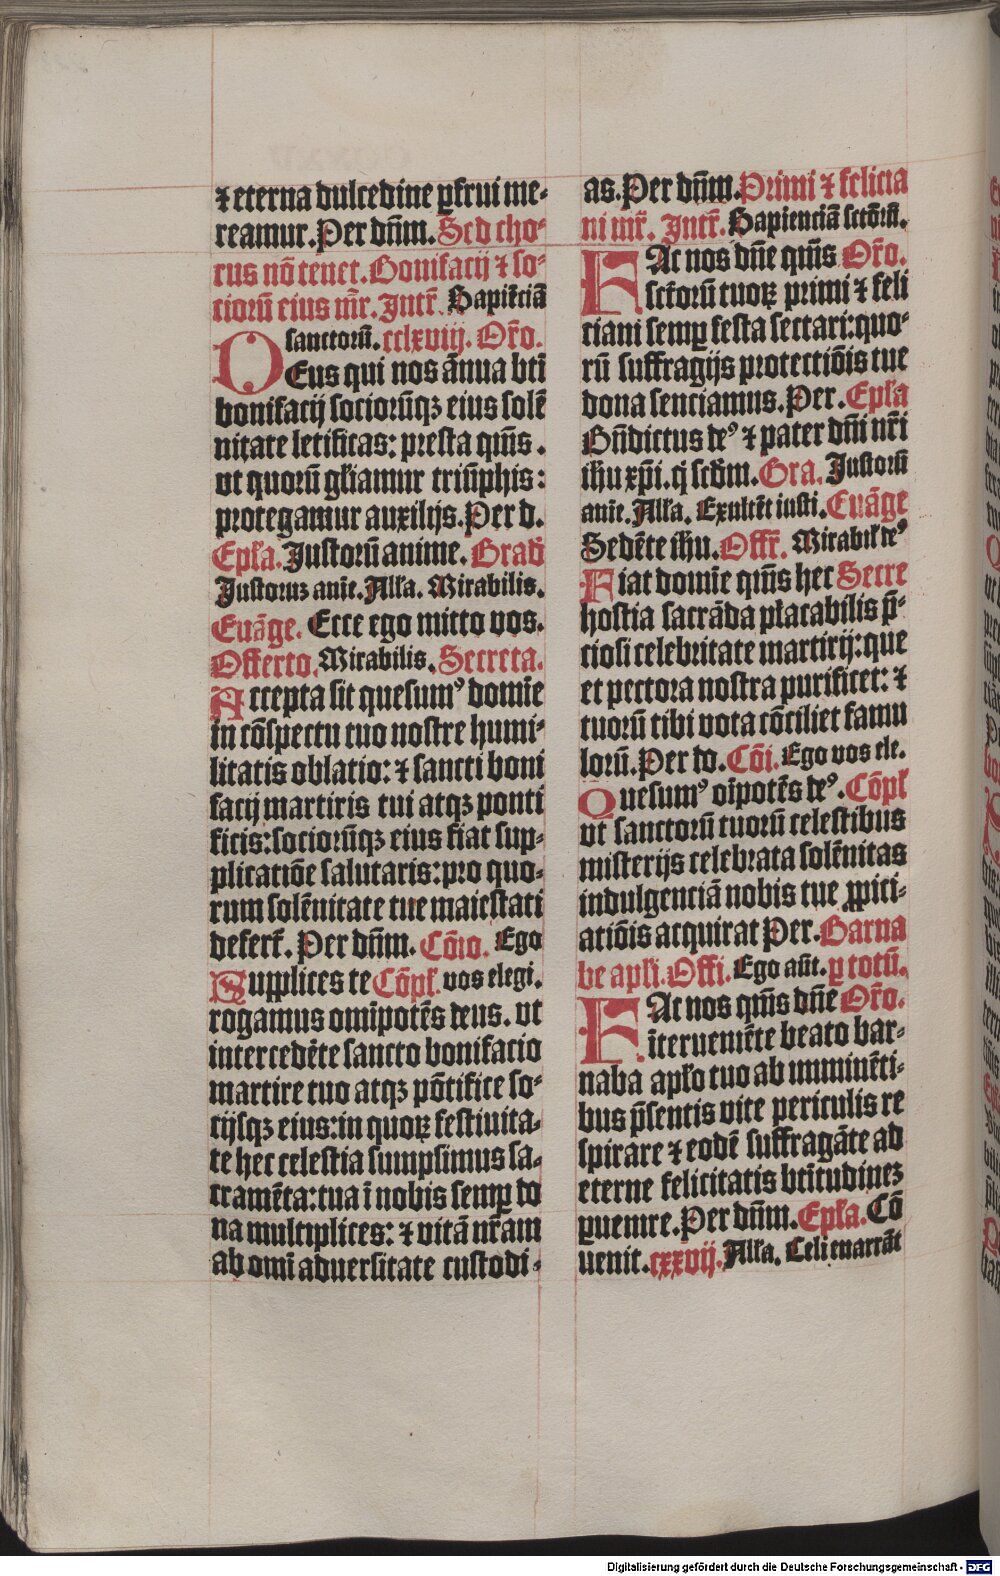 ⁊ eterna dulcedine ꝑfrui me-
reamur. Per dn̄m. Sed cho-
rus nō tenet. Bonifacij ⁊ so-
ciorū eius mr̄. Intr̄. Sapiēciā
sanctorū. cclxviij. Or̄o.
DEus qui nos ānua bt̄i
bonifacij sociorūqꝫ eius solē
nitate letificas: presta qm̄s.
vt quorū gl̄iamur triūphis:
protegamur auxilijs. Per d.
Ep̄la. Justorū anime. Grad̄
Justoruꝫ anīe. All̄a. Mirabilis.
Euāge. Ecce ego mitto vos.
Offerto. Mirabilis. Secreta.
Accepta sit quesumꝰ domīe
in cōspectu tuo nostre humi-
litatis oblatio: ⁊ sancti boni
facij martiris tui atqꝫ ponti
ficis: sociorūqꝫ eius fiat sup-
plicatiōe salutaris: pro quo-
rum solēnitate tue maiestati
defert̄. Per dn̄m. Cōio. Ego
Supplices te Cōpl̄. vos elegi.
rogamus omīpotēs deus. vt
intercedēte sancto bonifacio
martire tuo atqꝫ pōtifice so-
cijsqꝫ eius: in quoꝝ festiuita-
te hec celestia sumpsimus sa-
cramēta: tua ī nobis semꝑ do
na multiplices: ⁊ vitā nr̄am
ab omī aduersitate custodi-
as. Per dn̄m. Primi ⁊ felicia
ni mr̄. Intr̄. Sapienciā sctōrū.
FAc nos dn̄e qm̄s Or̄o.
sctōrū tuoꝝ primi ⁊ feli
ciani semꝑ festa sectari: quo-
rū suffragijs protectiōis tue
dona senciamus. Per. Ep̄la
Bn̄dictus deꝰ ⁊ pater dn̄i nr̄i
ih̄u xp̄i. q̄ scd̄m. Gra. Justorū
anīe. All̄a. Exultēt iusti. Euāge
Sedēte ih̄u. Offr̄. Mirabil̄ deꝰ
Fiat domīe qm̄s hec Secre
hostia sacrāda placabilis p̄-
ciosi celebritate martirij: que
et pectora nostra purificet: ⁊
tuorū tibi vota cōciliet famu
lorū. Per do. Cōi. Ego vos ele.
Quesumꝰ oīpotēs deꝰ. Cōpl̄
vt sanctorū tuorū celestibus
misterijs celebrata solēnitas
indulgenciā nobis tue ꝓpici-
atiōis acquirat Per. Barna
be apl̄i. Offi. Ego aūt. ꝑ totū.
FAc nos qm̄s dn̄e Or̄o.
īterueniēte beato bar-
naba apl̄o tuo ab imminēti-
bus p̄sentis vite periculis re
spirare ⁊ eodē suffragāte ad
eterne felicitatis bt̄itudineꝫ
ꝑuenire. Per dn̄m. Ep̄la. Cō
uenit. cxxvij. All̄a. Celi enarrāt
Digitalisierung gefördert durch die Deutsche Forschungsgemeinschaft - DFG